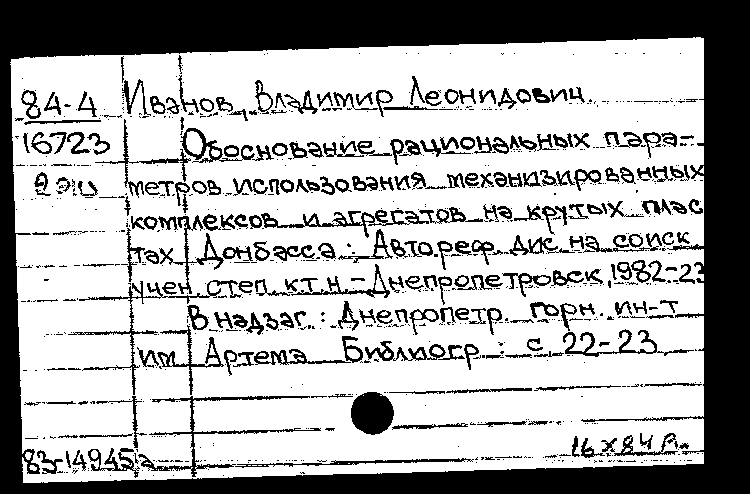 84-4 Иванов, Владимир Леонидович.
16723 Обоснование рациональных пара-
метров использования механизированных
комплексов и агрегатов на крутых плас
тах Донбасса: Автореф. дис. на соиск.
учен. степ. к.т.н. - Днепропетровск, 1982-23
В надзаг.: Днепропетр. горн. ин-т
им Артема Библиогр: с. 22-23
16 X 84
83-14945а